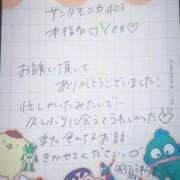 サンタモニカ403
本指名♡Yさま♡
お誘い頂いて
ありがとうございました!
忙しかったみたいで…
久しぶりに会えてうれしかった♡
また色んなお話
きかせてください♪